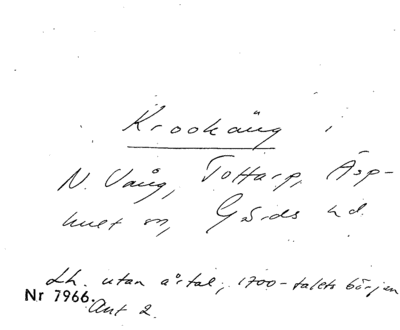 Krookäng i
N. Vång, Tottarp, Äsp-
hult sn, Gärds hd.
Lh. utan årtal, 1700-talets början
Nr 7966.
Ant 2.